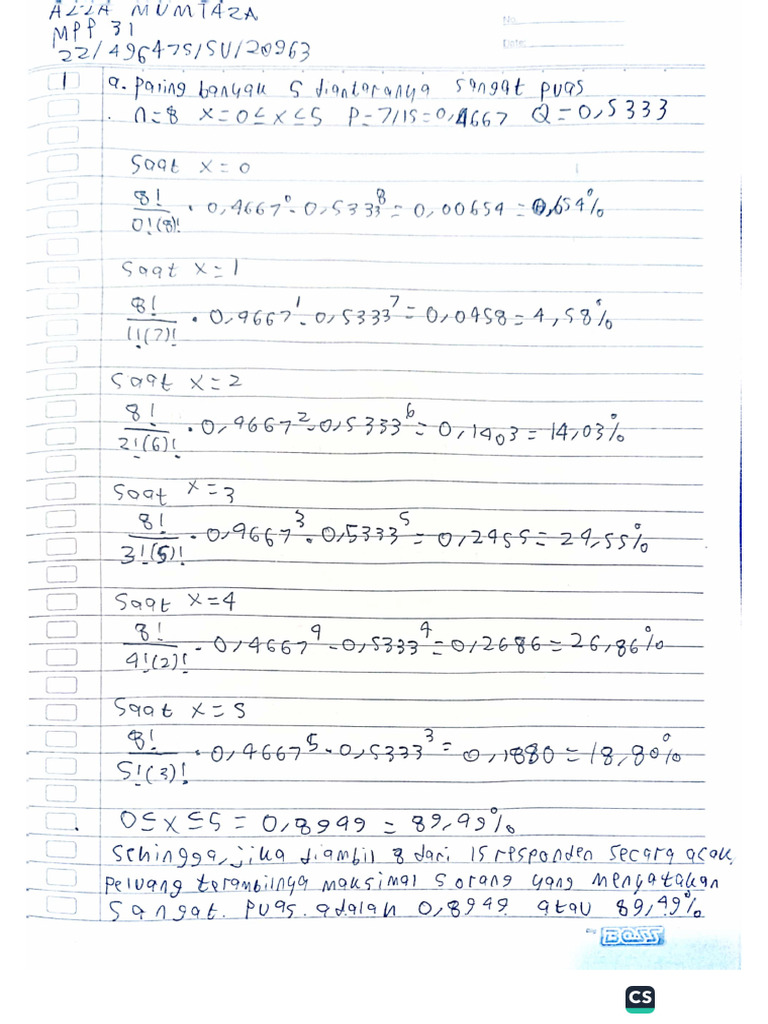 ALLA MUMTAZA
MPP 31
22/496475/SU/20963
No.
Date:
1 a. Paling banyak 5 diantaranya sangat puas
n=8 x=0≤x≤5 P=7/15=0,4667 Q=0,5333
Saat x=0
8!/0!(8)! · 0,4667^0 · 0,5333^8 = 0,00654 = 0,654%
Saat x=1
8!/1!(7)! · 0,4667^1 · 0,5333^7 = 0,0458 = 4,58%
Saat x=2
8!/2!(6)! · 0,4667^2 · 0,5333^6 = 0,1403 = 14,03%
Saat x=3
8!/3!(5)! · 0,4667^3 · 0,5333^5 = 0,2455 = 24,55%
Saat x=4
8!/4!(2)! · 0,4667^4 · 0,5333^4 = 0,2686 = 26,86%
Saat x=5
8!/5!(3)! · 0,4667^5 · 0,5333^3 = 0,1880 = 18,80%
0≤x≤5 = 0,8949 = 89,49%
Sehingga, jika diambil 8 dari 15 responden secara acak,
Peluang terambilnya maksimal 5 orang yang menyatakan
Sangat puas adalah 0,8949 atau 89,49%
BOSS
CS